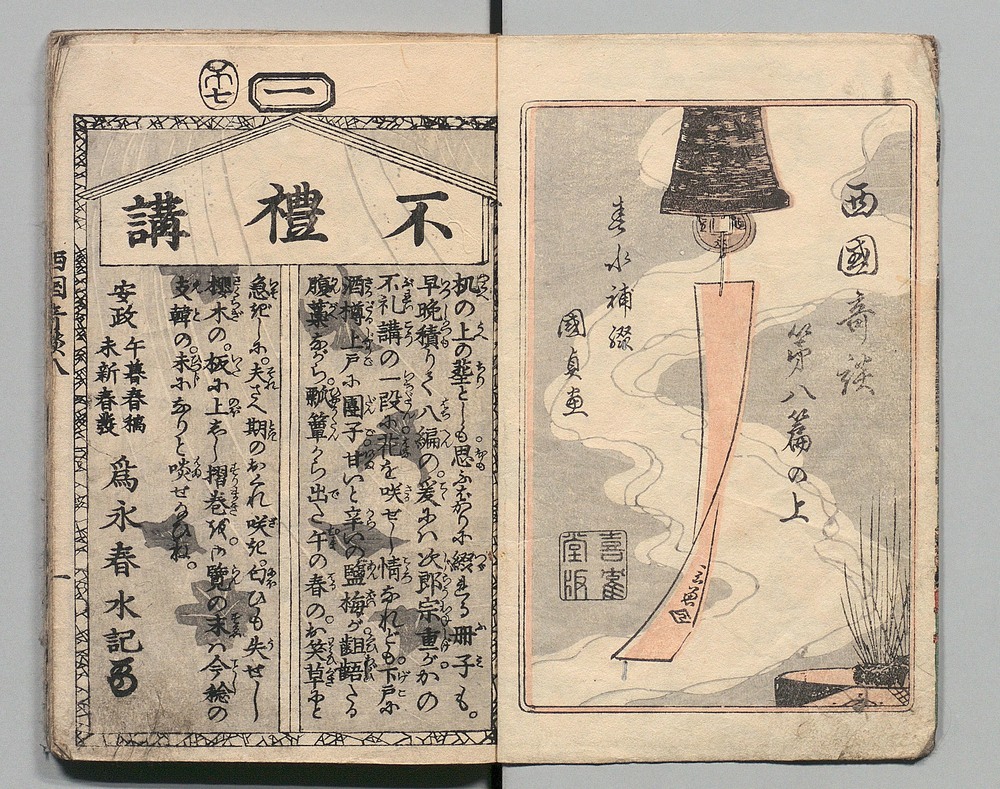 西國奇談
第八篇の上
春水補綴
國貞画
喜雀
堂版
一
不禮講
机の上の塵としも思ふばかりに綴れる冊子も。
早晩積りて八編の。爰には次郎宗重がかの
不礼講の一段に。花を咲せし情なれども。下戸に
酒樽上戸に團子甘いと辛いの塩梅が齟齬たる
腹藁ながら。瓢簞から出た午の春の。お笑草にと
急げしに。夫さへ期のおくれ咲き。匂ひも失せし
櫻木の。板に上して摺巻を。御覧の末は今稔の
支幹の。未になりと咲せ給ひね。
安政
午暮春稿
未新春發
爲永春水記
西國奇談八
一